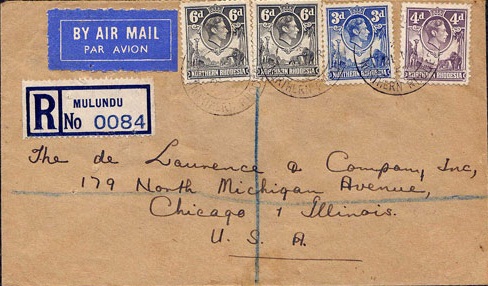 BY AIR MAIL
PAR AVION
6d 6d
NORTHERN RHODESIA
6d 6d
NORTHERN RHODESIA
3d 3d
NORTHERN RHODESIA
4d 4d
NORTHERN RHODESIA
R MULUNDU
No 0084
The de Laurence & Company, Inc,
179 North Michigan Avenue,
Chicago 1 Illinois.
U. S. A.